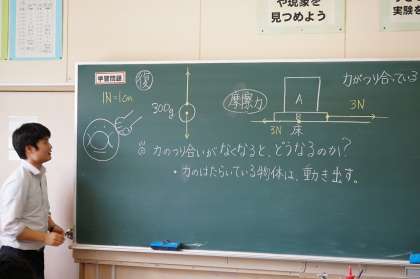 や現象を
見つめよう
実験を
学習問題
復
1N=1cm
300g
摩擦力
A
B
力がつり合っている
3N
3N
床
力のつり合いがなくなると、どうなるのか?
・力のはたらいている物体は、動き出す。